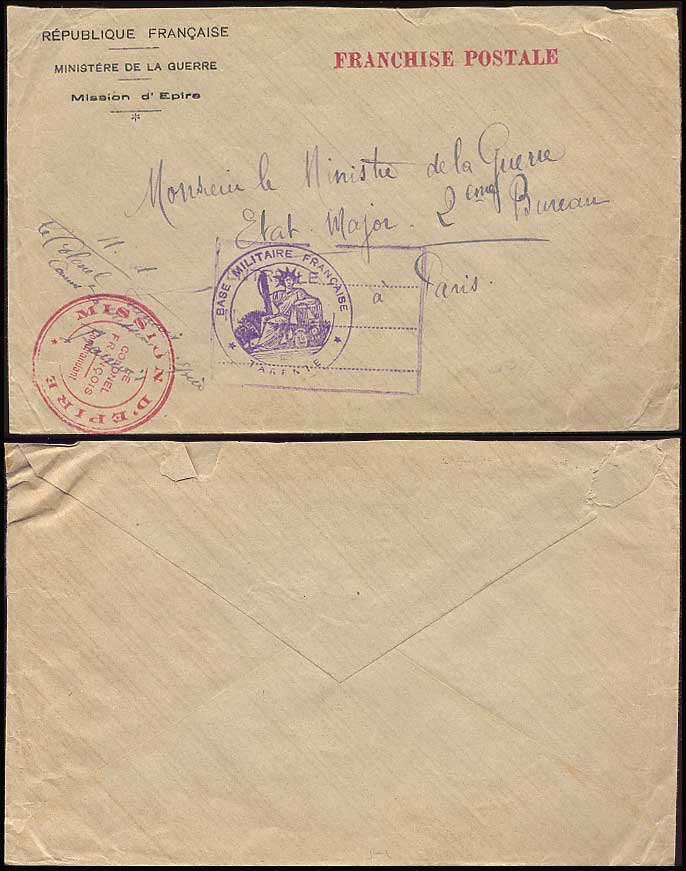 RÉPUBLIQUE FRANÇAISE
MINISTÈRE DE LA GUERRE
Mission d'Epire
FRANCHISE POSTALE
Monsieur le Ministre de la Guerre
Etat-Major. 2eme Bureau
à Paris.
Le Colonel
BASE MILITAIRE FRANÇAISE
* TARENTE *
* MISSION D'EPIRE *
LE
COLONEL
FRANÇOIS
Commandant